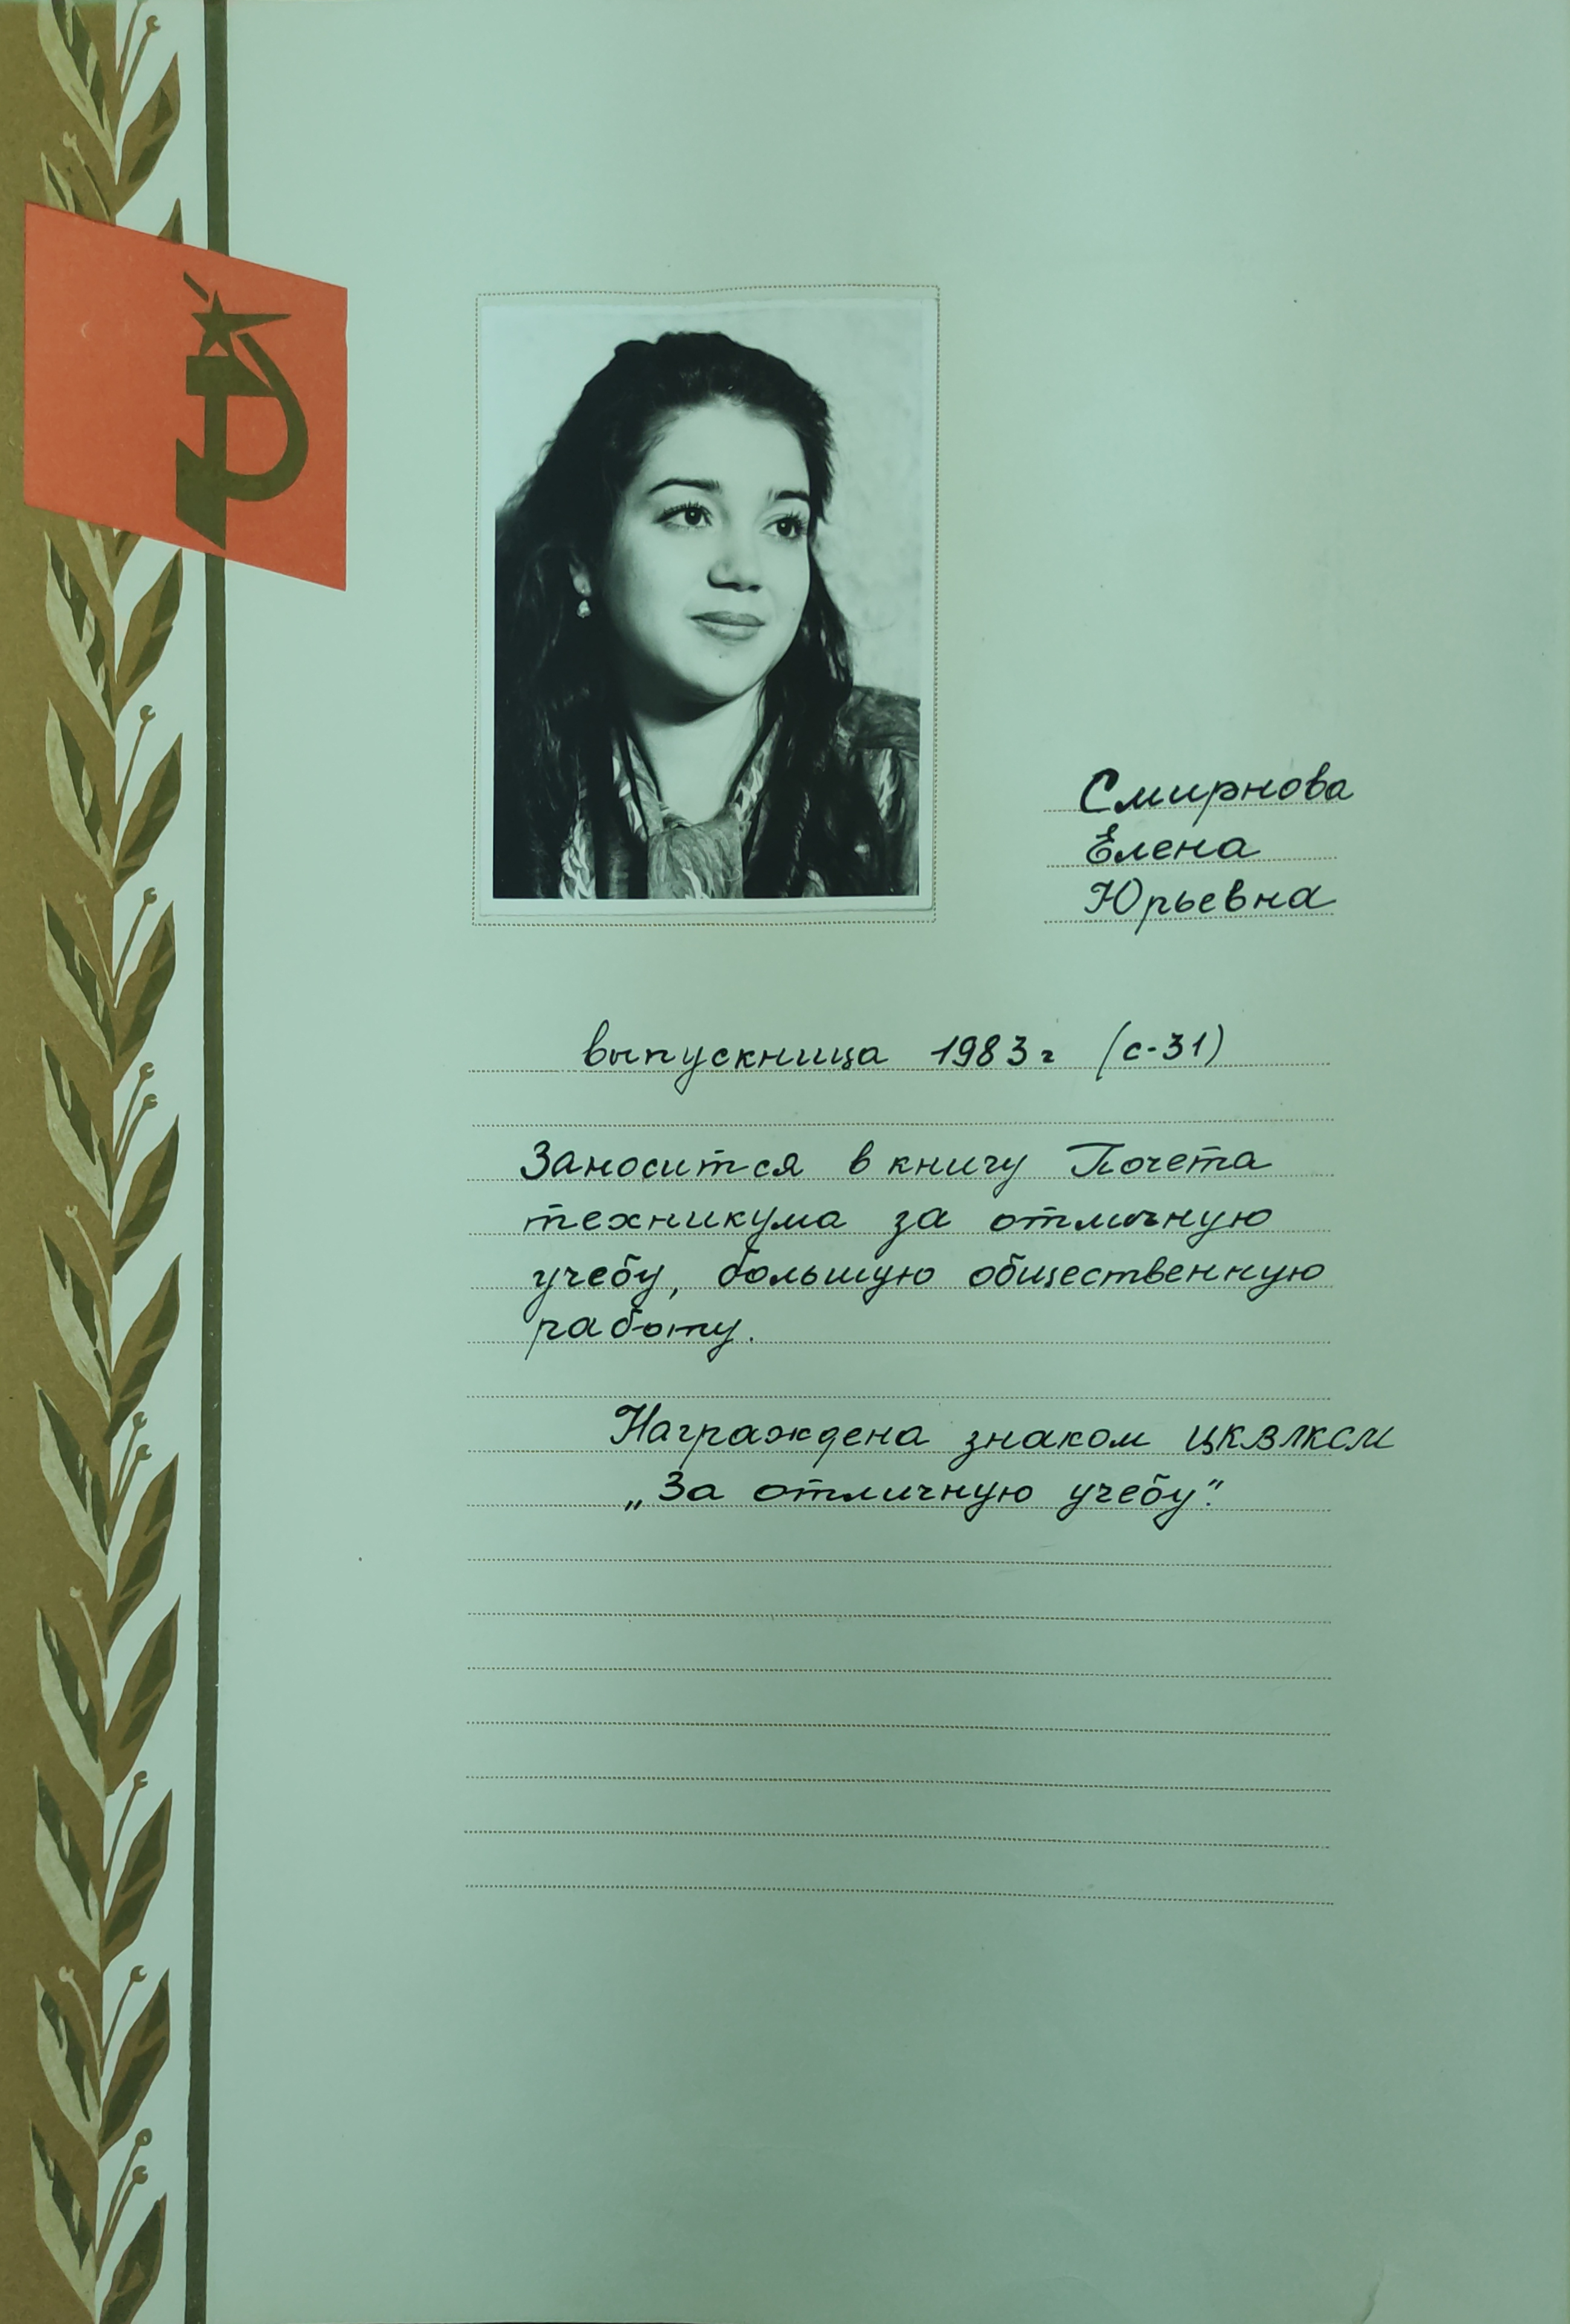 Смирнова
Елена
Юрьевна
выпускница 1983 г (с-31)
Заносится в книгу Почета
техникума за отличную
учебу, большую общественную
работу.
Награждена знаком ЦКВЛКСМ
„За отличную учебу".